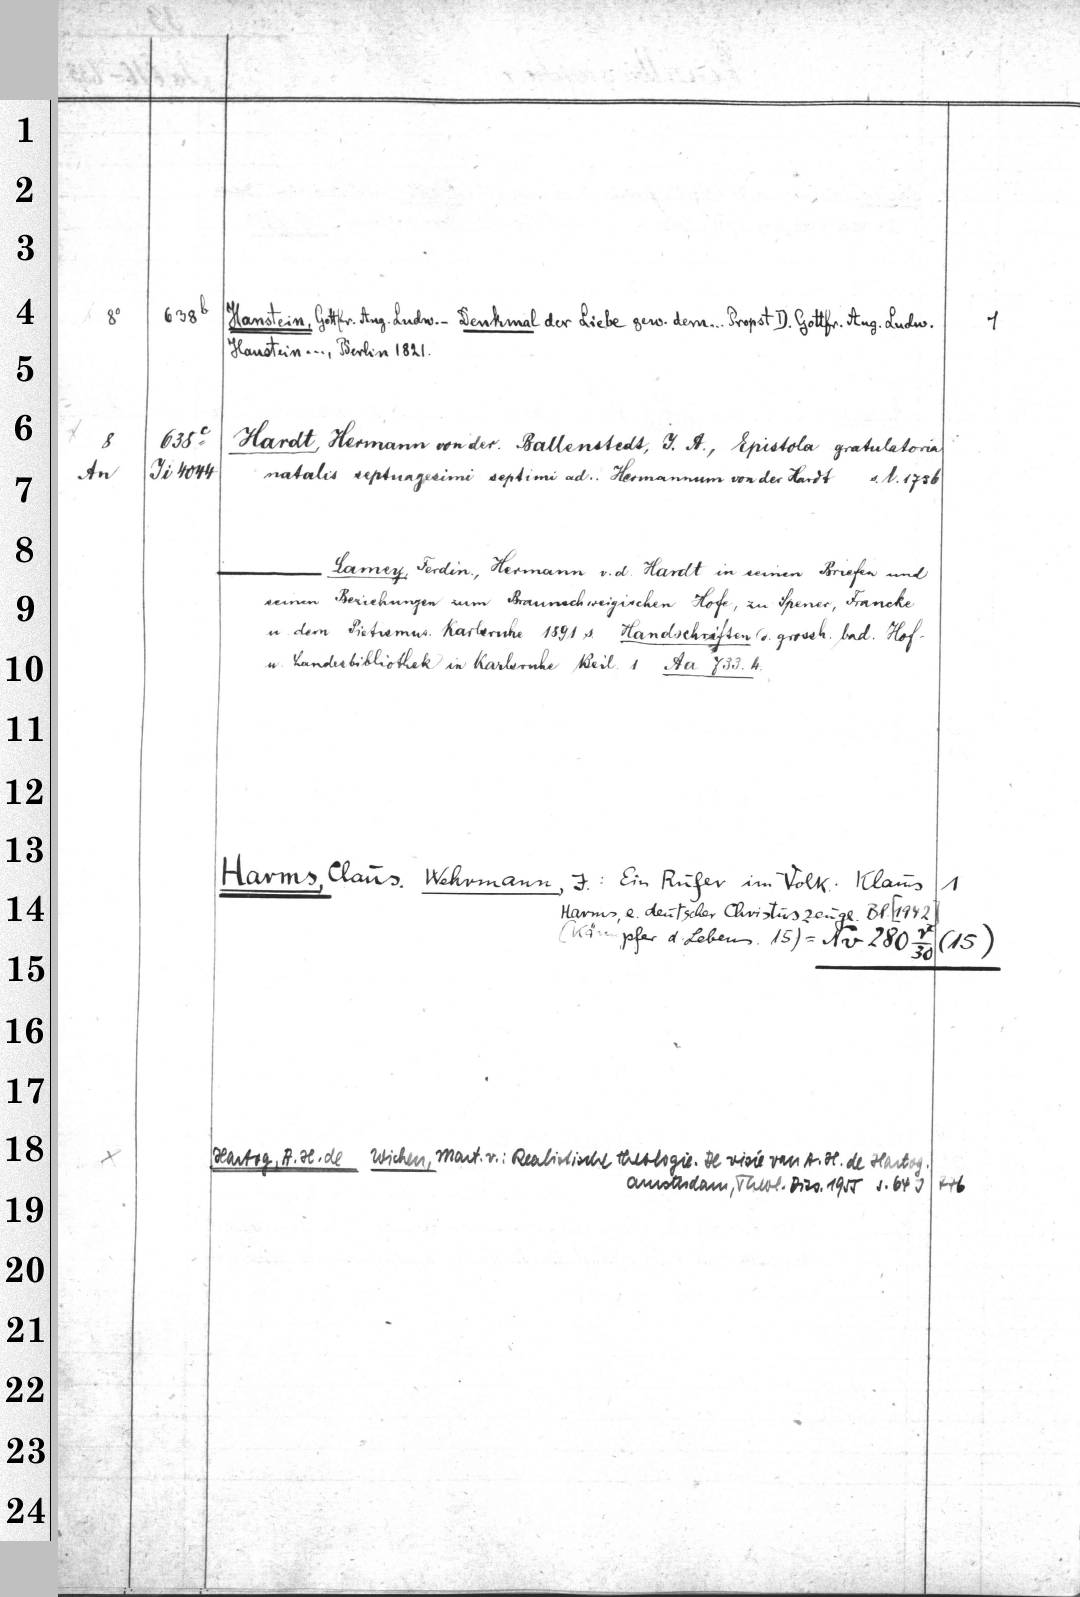 1
2
3
4
8° 638b Hanstein, Gottfr. Aug. Ludw. – Denkmal der Liebe gew. dem... Propst D. Gottfr. Aug. Ludw. 1
Hanstein ..., Berlin 1821.
5
6
8 638c Hardt, Hermann von der. Ballenstedt, J. A., Epistola gratulatoria
7
An Ji 4044 natalis septuagesimi septimi ad.. Hermannum von der Hardt s. l. 1736
8
Lamey, Ferdin., Hermann v. d. Hardt in seinen Briefen und
9
seinen Beziehungen zum Braunschweigischen Hofe, zu Spener, Francke
u. dem Pietismus. Karlsruhe 1891 s. Handschriften d. grossh. bad. Hof-
10
u. Landesbibliothek in Karlsruhe Beil. 1 Aa 733. 4.
11
12
13
Harms, Claus. Wehrmann, J.: Ein Rufer im Volk. Klaus 1
14
Harms, e. deutscher Christuszeuge. Bl. [1942]
(Kämpfer d. Lebens. 15) = Nv 280 (15)
30
15
16
17
18
Hartog, A. H. de Wichen, Mart. v.: Realistische theologie. De visie van A. H. de Hartog.
Amsterdam, Theol. Diss. 1955 s. 64
19
20
21
22
23
24